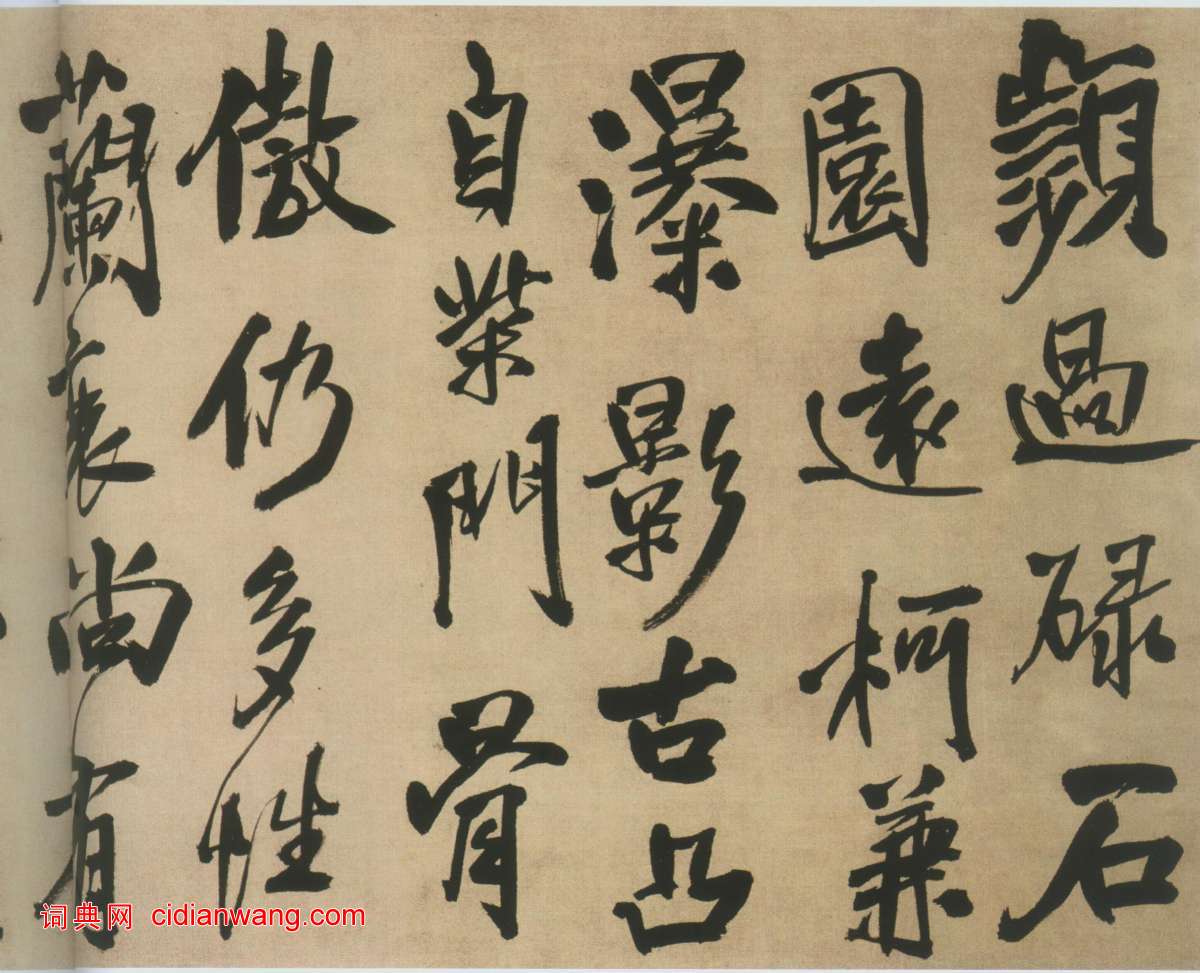 顗過碌石
園遠柯兼
瀑影古凸
自柴門骨
傲仍多性
蘭衰尚有
词典网 cidianwang.com